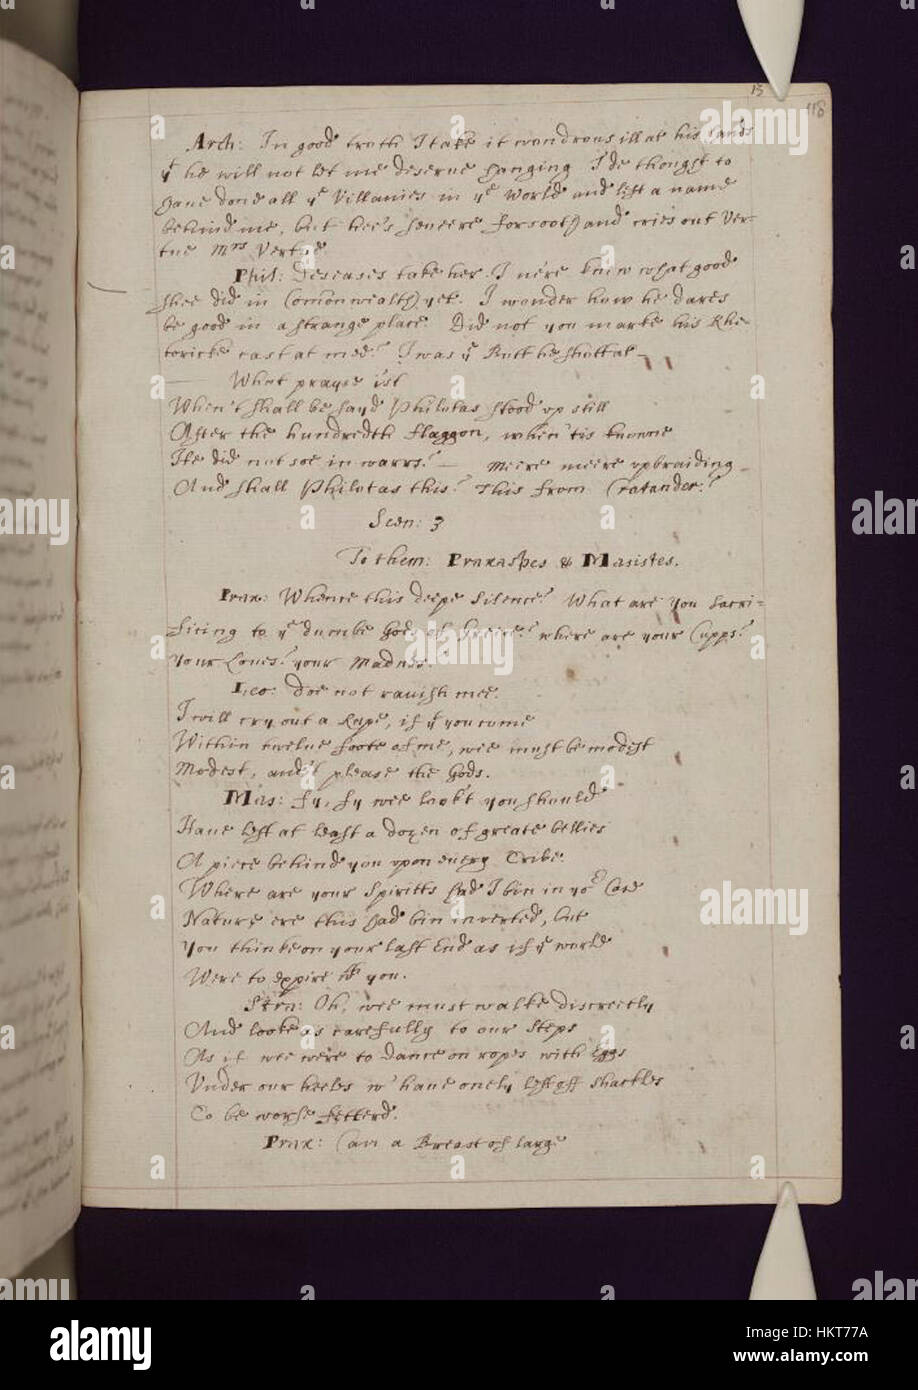 13
118
Arch: In good truth I take it wondrous ill at his hands
yt he will not let me deserue hanging I'de thought to
haue done all ye Villanies in ye world and left a name
behind me, but hee's seueere forsooth and cries out Ver-
tue Mrs Vertue
Phil: Deseases take her. I ne're knew what good
shee did in Comonwealth yet. I wonder how he dares
be good in a strange place. Did not you marke his Rhe-
toricke cast at mee? I was ye Butt he shott at —
— What prayse ist
When't shall be sayd Philotas stood vp still
After the hundredth flaggon, when 'tis knowne
He did not soe in warrs? — meere meere vpbraiding —
And shall Philotas this? This from Cratander?
Scen: 3
To them: Praxaspes & Masistes.
Prax: Whence this deepe silence? What are you sacri-
ficing to ye dumbe Gods of Greece? where are your Cupps?
your Loues? your Madnes?
Leo: Doe not rauish mee.
I will cry out a Rape, if yt you come
Within twelue foote of me, wee must be modest
Modest, and't please the Gods.
Mas: fy, fy wee look't you should
Haue left at least a dozen of greate bellies
A piece behind you vpon euery Tribe.
Where are your Spiritts had I bin in yor Case
Nature ere this had bin inverted, but
You thinke on your last End as if ye world
Were to expire wth you.
Sten: Oh, wee must walke discreetly
And looke as carefully to our steps
As if wee were to dance on ropes with Eggs
Vnder our heeles w' haue onely left off shackles
To be worse fetterd.
Prax: Can a Breast of large
alamy
Image ID: HKT77A
www.alamy.com